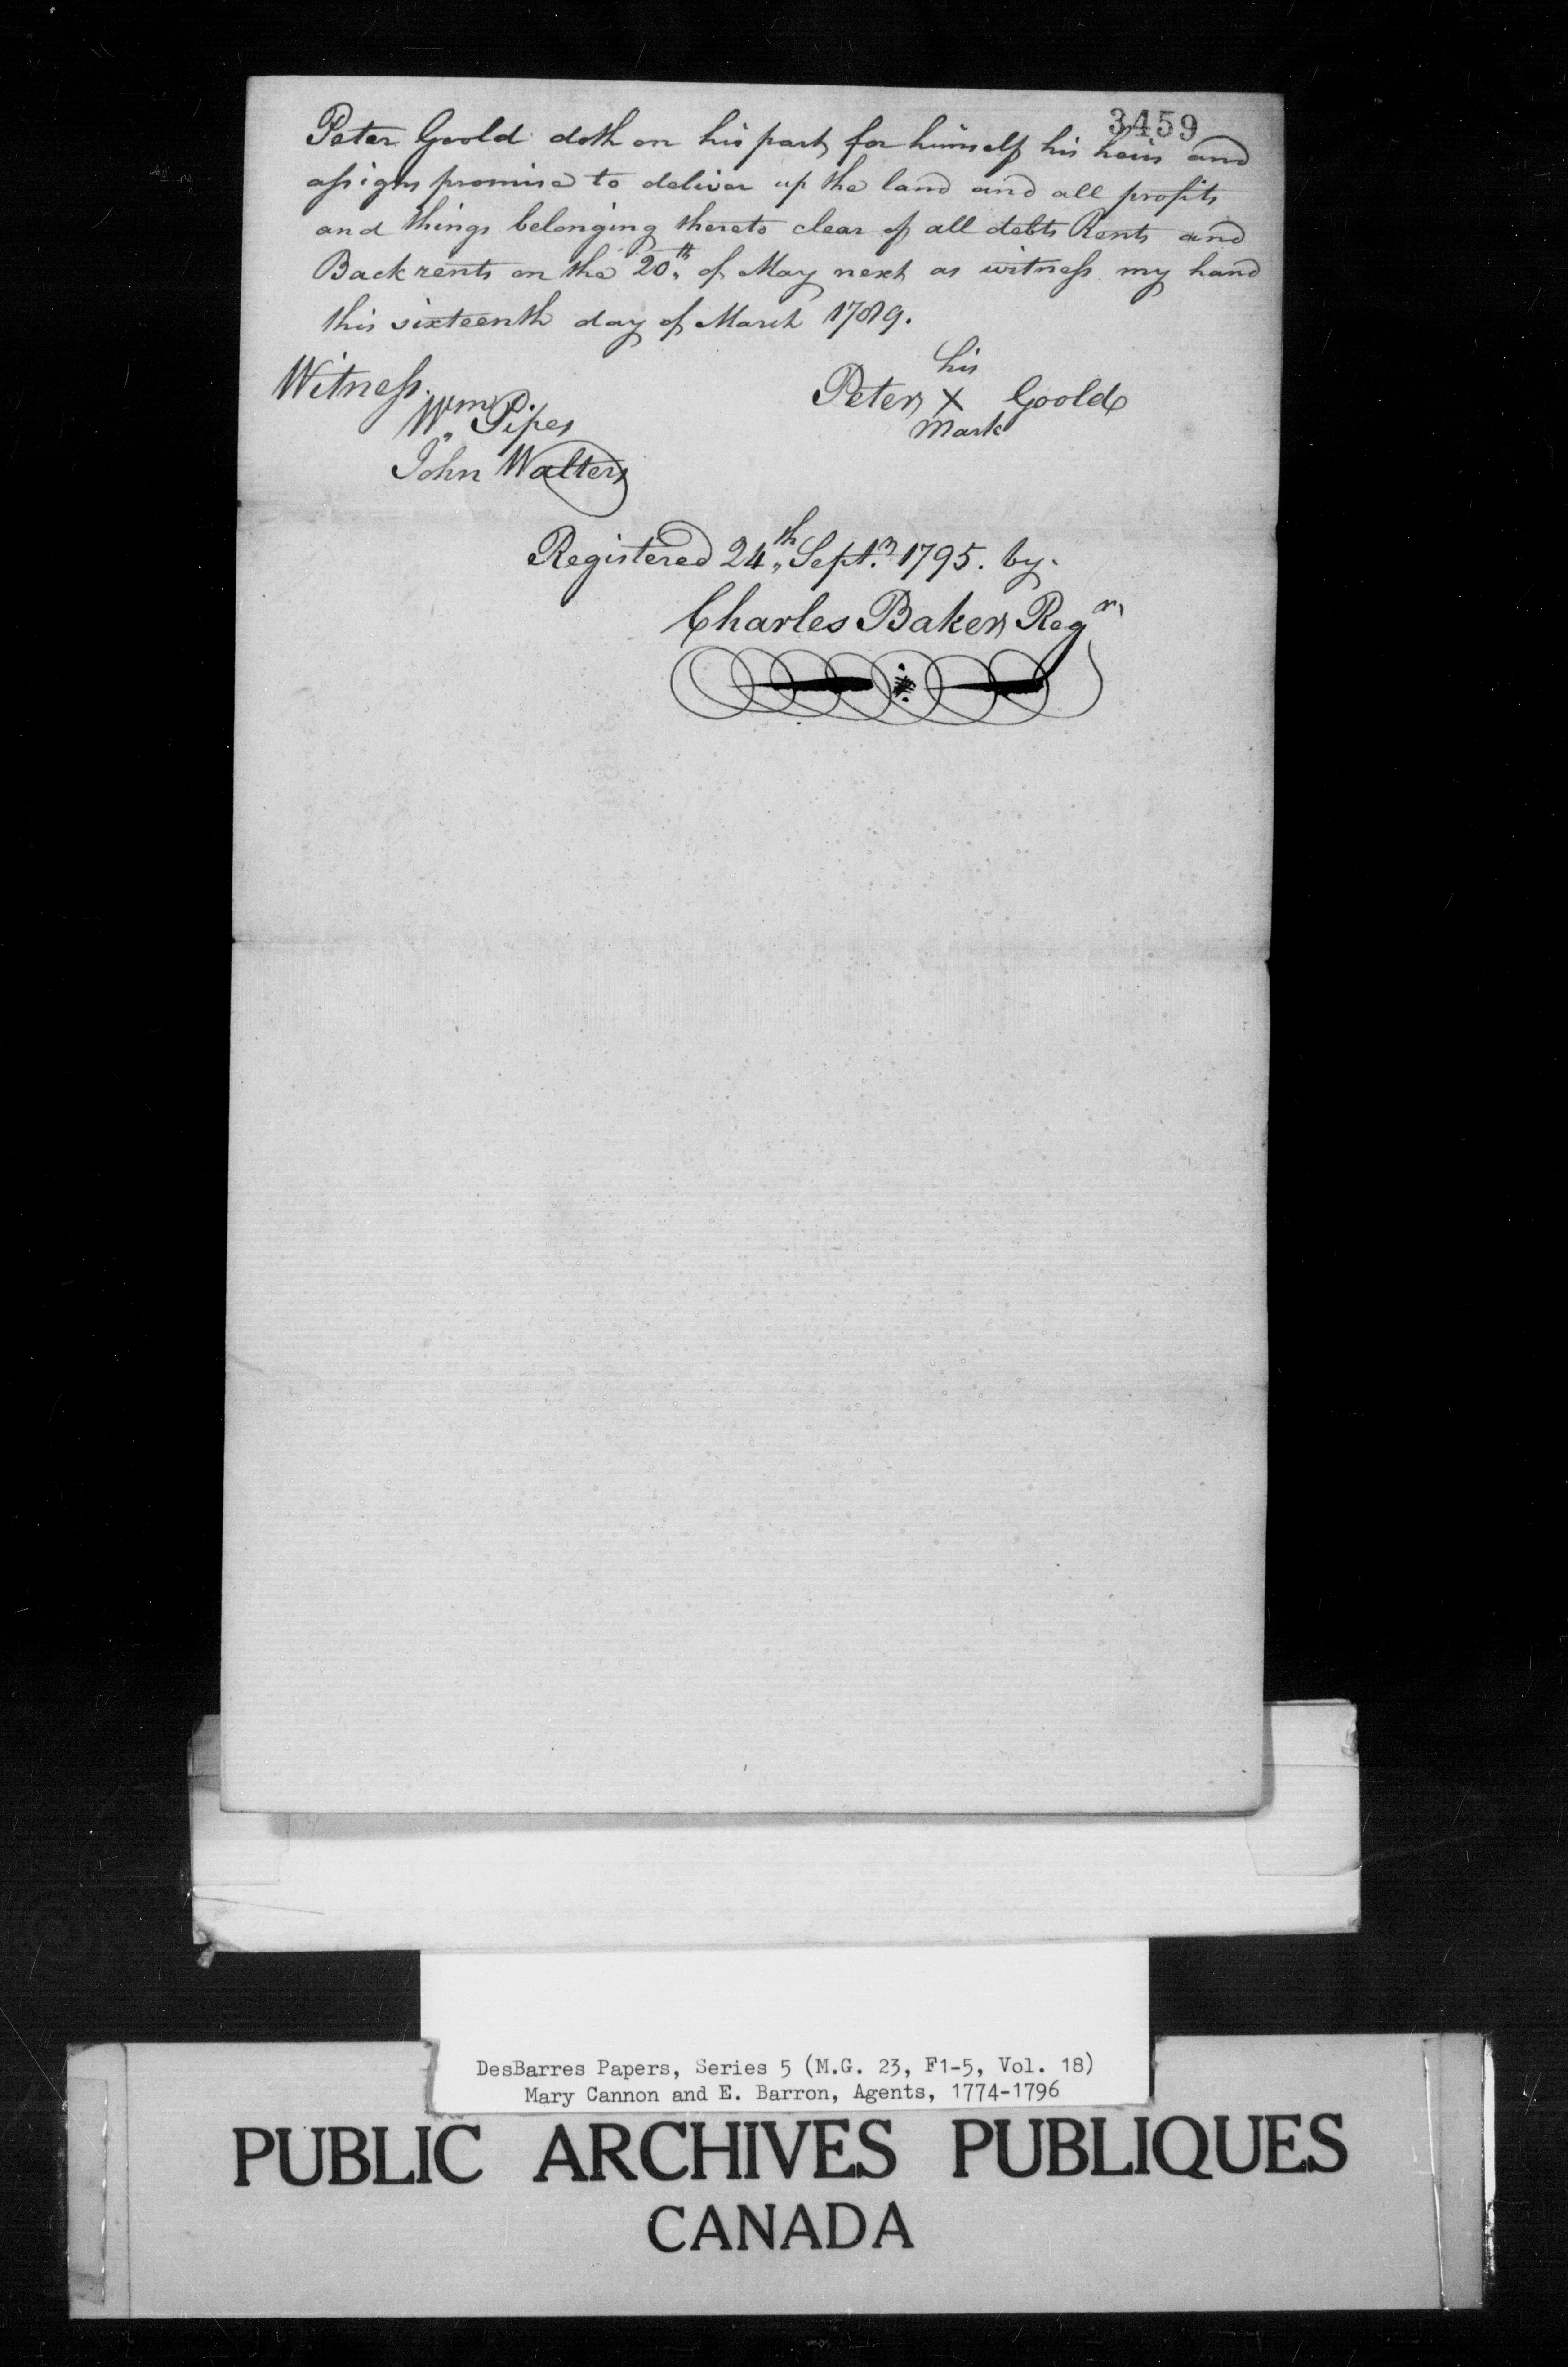 3459
Peter Goold doth on his part for himself his heirs and
assigns promise to deliver up the land and all profits
and things belonging thereto clear of all debts Rents and
Back rents on the 20th. of May next as witness my hand
this sixteenth day of March 1789.
his
Peter X Goold
Mark
Witness.
Wm. Pipes
John Walters
Registered 24th Septr. 1795. by.
Charles Baker Regr
DesBarres Papers, Series 5 (M.G. 23, F1-5, Vol. 18)
Mary Cannon and E. Barron, Agents, 1774-1796
PUBLIC ARCHIVES PUBLIQUES
CANADA